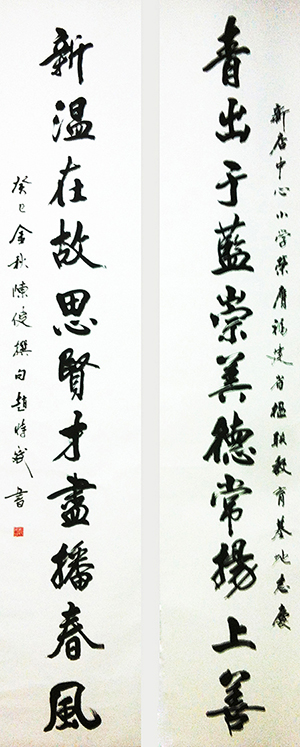 新店中心小学荣膺福建省楹联教育基地志庆
青出于藍崇美德常揚上善
新温在故思賢才盡播春風
癸巳金秋陳俊撰句趙時斌書